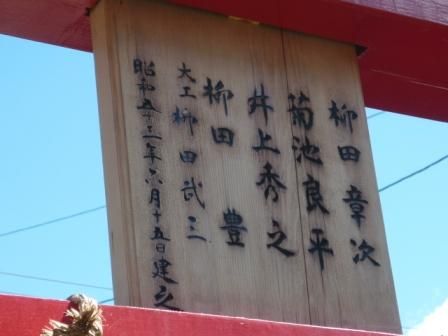 柳田章次
菊池良平
井上秀之
柳田豊
大工柳田武三
昭和五十三年六月十五日建之